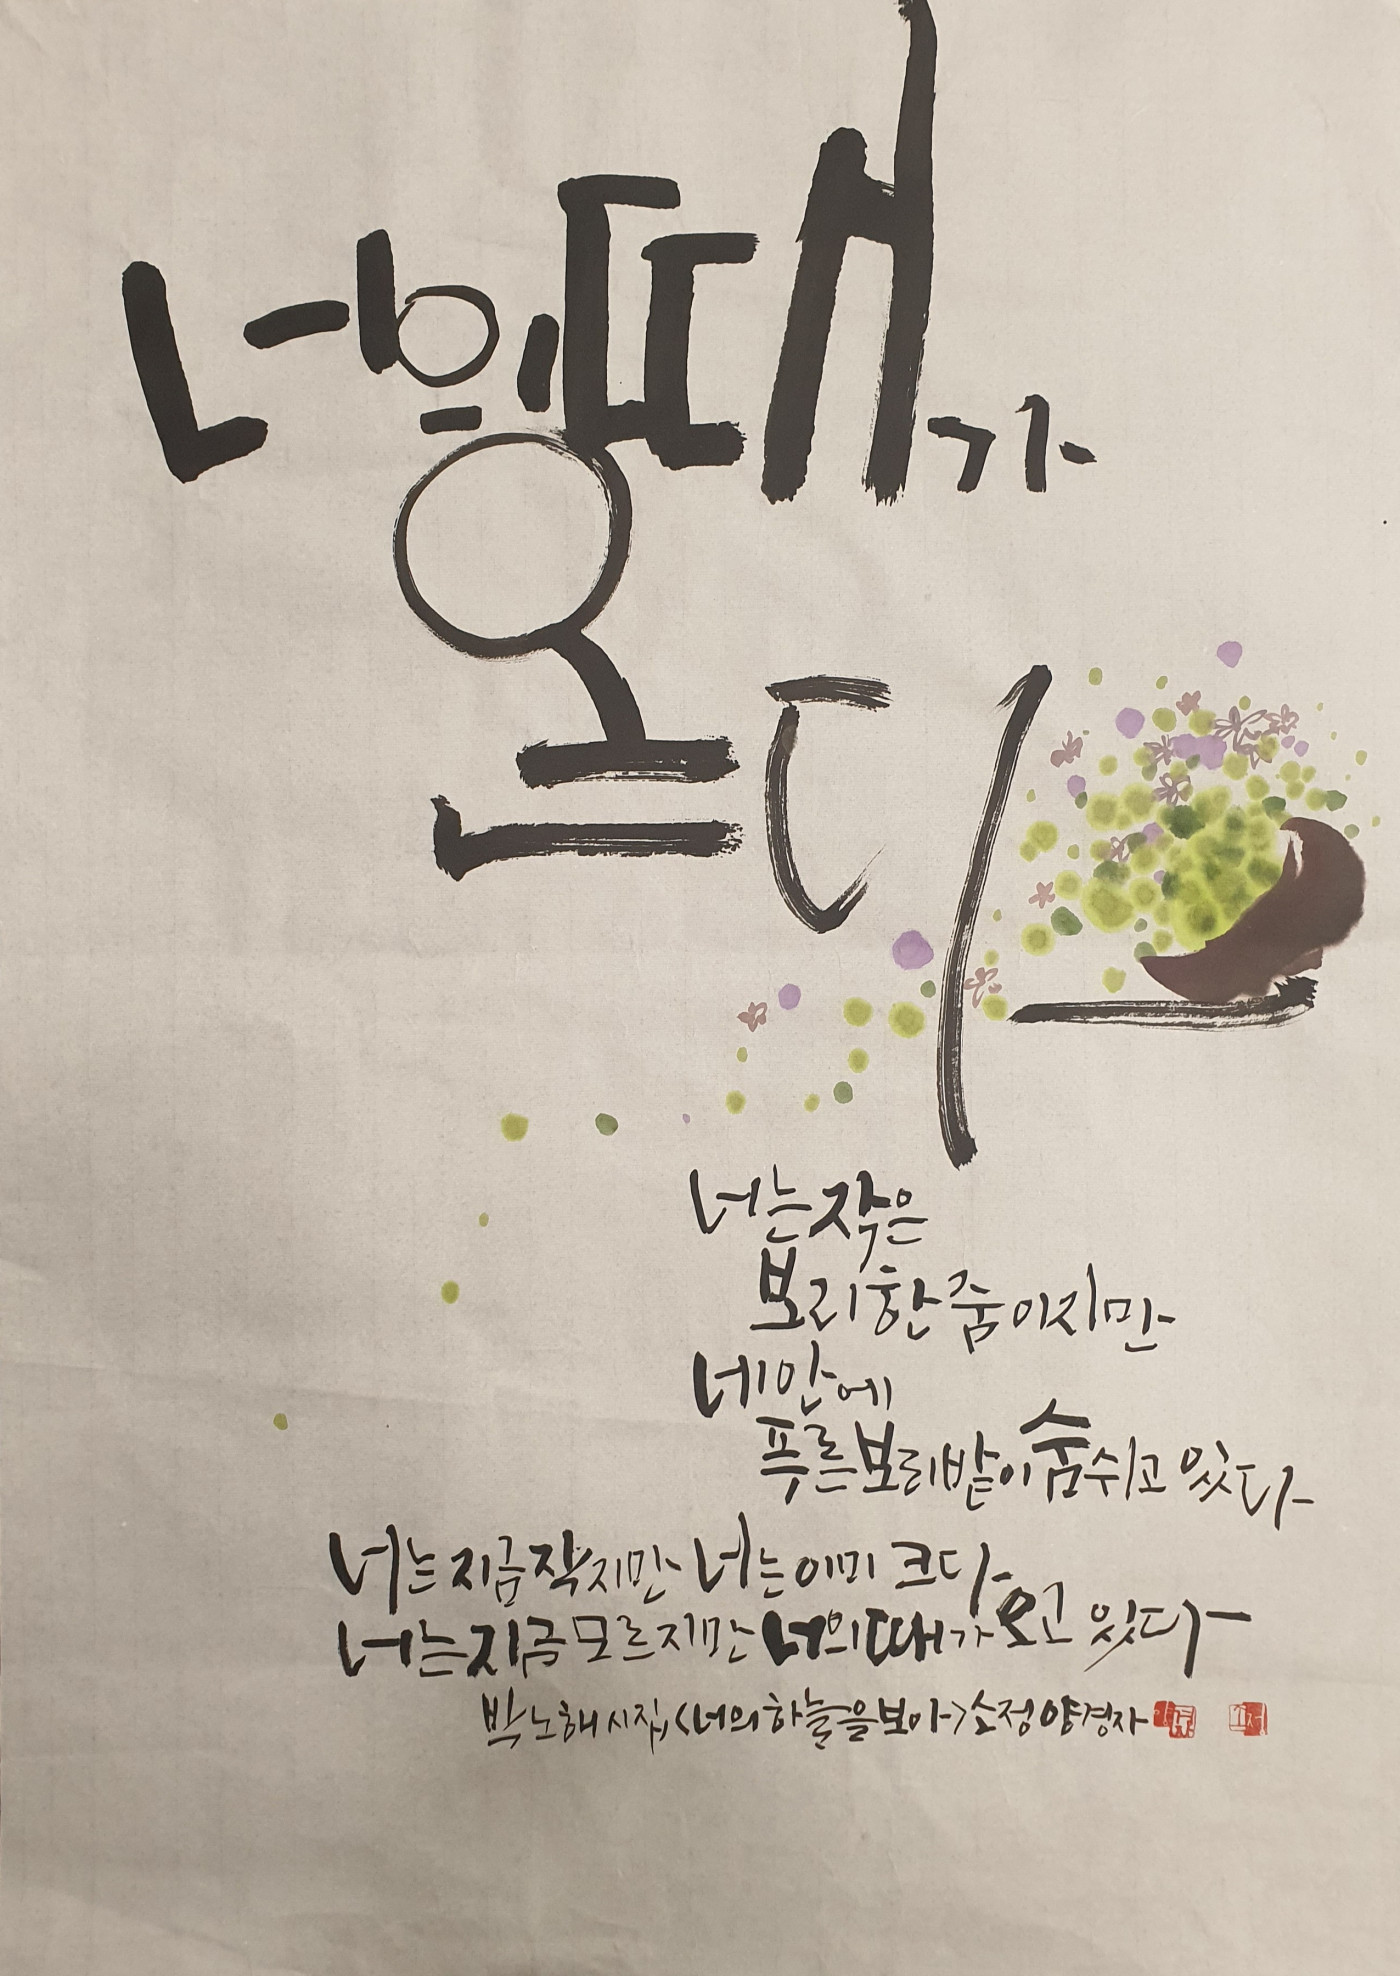 너의 때가
온다
너는 작은
보리 한 줌이지만
네 안에
푸른 보리밭이 숨쉬고 있다
너는 지금 작지만 너는 이미 크다
너는 지금 모르지만 너의 때가 오고 있다
박노해 시집, <너의 하늘을 보아> 소정 양경자